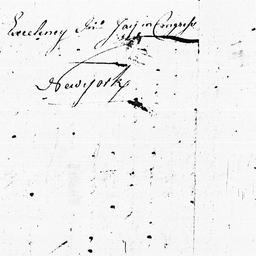 Excellency Jno. Jay in Congress
New York